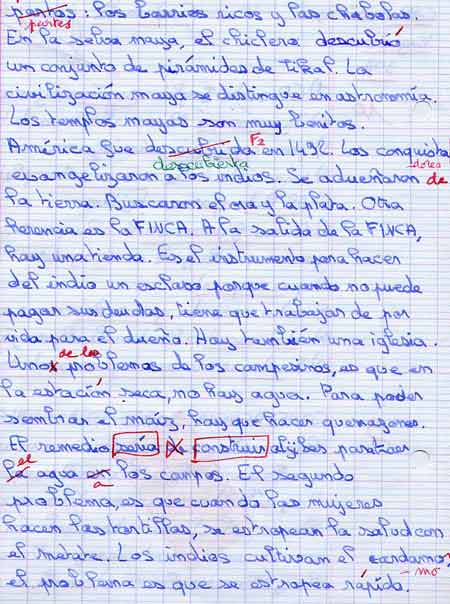 partis : los barrios ricos y las chabolas.
partes
En la selva maya, el chiclero descubrió
un conjunto de pirámides de Tikal. La
civilización maya se distingue en astronomía.
Los templos mayas son muy bonitos.
América que descubrida F2 en 1492. Los conquista
descubierta dores
evangelizaron a los indios. Se adueñaron de
la tierra. Buscaron el ora y la plata. Otra
herencia es la FINCA. A la salida de la FINCA,
hay una tienda. Es el instrumento para hacer
del indio un esclavo porque cuando no puede
pagar sus deudas, tiene que trabajar de por
vida para el dueño. Hay también una iglesia.
de los
Uno problemas de los campesinos, es que en
la estación seca, no hay agua. Para poder
sembrar el maíz, hay que hacer quemazones.
El remedio sería construir aljibes para traer
el
la agua en los campos. El segundo
a
problema, es que cuando las mujeres
hacen las tortillas, se estropean la salud con
el metate. Los indios cultivan el cardamo
mo
el problema es que se estropea rápido.